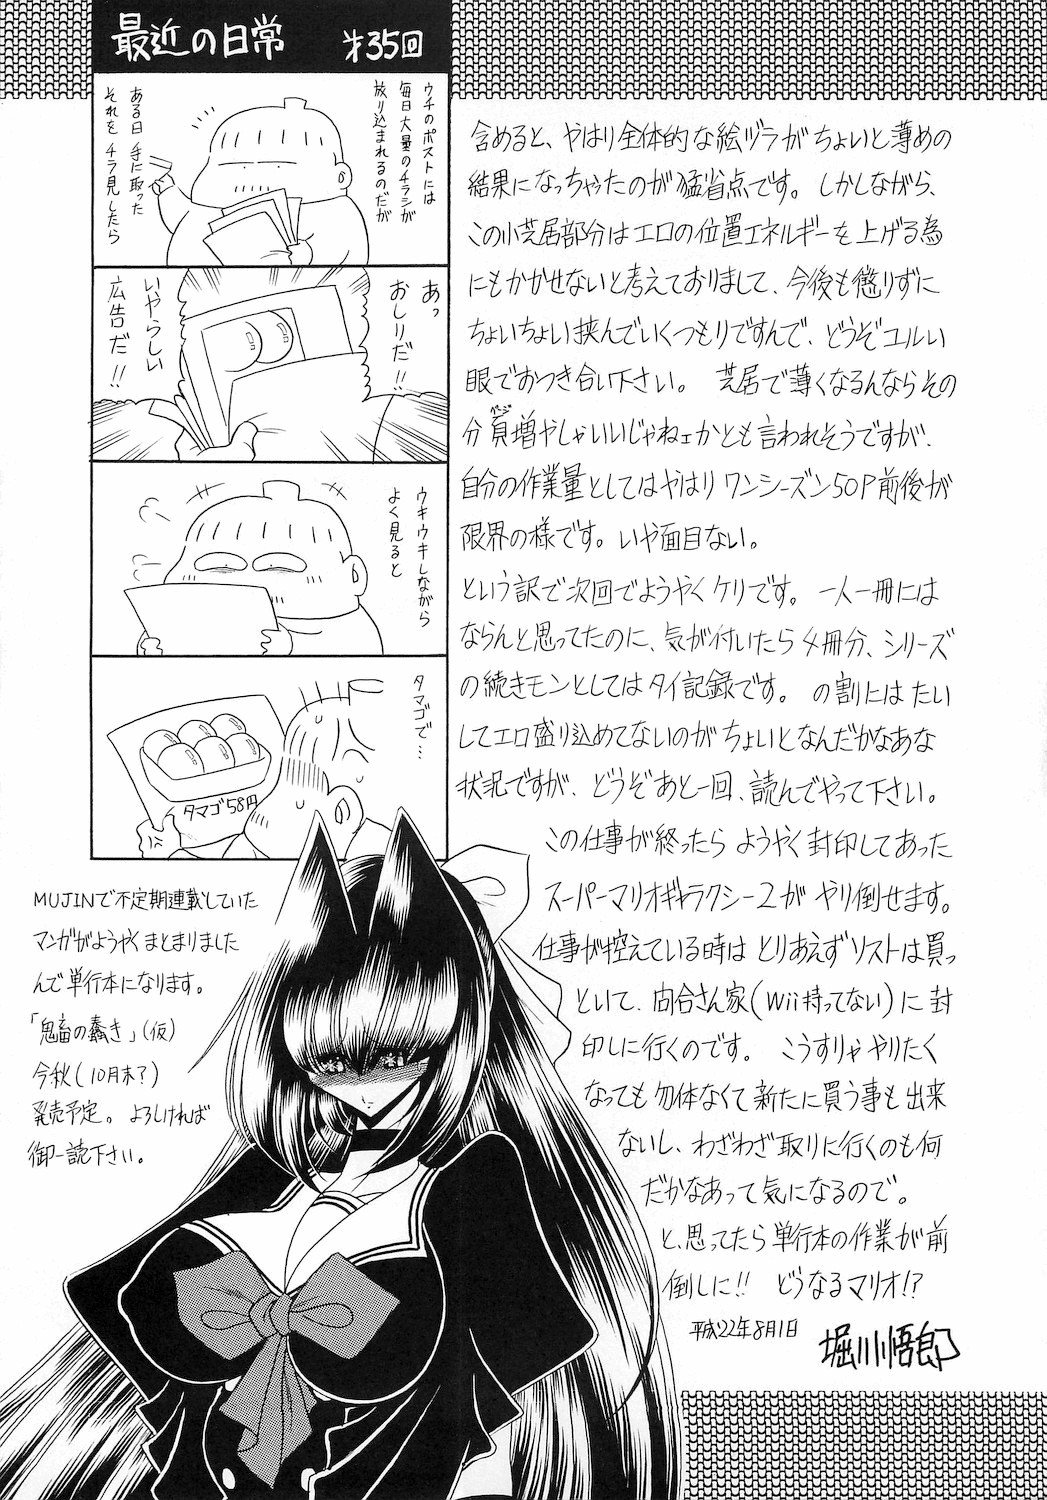 最近の日常 オ35回
ウチのポストには
毎日大量のチラシが
放り込まれるのだが
ある日 手に取った
それを チラ見したら
あっ
おしりだ!!
いやらしい
広告だ!!
ウキウキしながら
よく見ると
タマゴで…
タマゴ58円
含めると、やはり全体的な絵ヅラがちょいと薄めの
結果になっちゃったのが猛省点です。しかしながら、
この小芝居部分はエロの位置エネルギーを上げる為
にもかかせないと考えておりまして、今後も懲りずに
ちょいちょい挟んでいくつもりですんで、どうぞユルい
眼でおつき合い下さい。 芝居で薄くなるんならその
分頁増やしゃいいじゃねェかとも言われそうですが、
自分の作業量としてはやはりワンシーズン50P前後が
限界の様です。いや面目ない。
という訳で次回でようやくケリです。一人一冊には
ならんと思ってたのに、気が付いたら4冊分、シリーズ
の続きモンとしてはタイ記録です。の割にはたい
してエロ盛り込めてないのがちょいとなんだかなあな
状況ですが、どうぞあと一回、読んでやって下さい。
この仕事が終ったら ようやく封印してあった
スーパーマリオギャラクシー2が ヤリ倒せます。
仕事が控えている時は とりあえずソフトは買っ
といて、向合さん家(Wii持ってない)に封
印しに行くのです。 こうすりゃやりたく
なっても勿体なくて新たに買う事も出来
ないし、わざわざ取りに行くのも何
だかなあって気になるので。
と、思ってたら単行本の作業が前
倒しに!! どうなるマリオ!?
平成22年8月1日 堀川悟郎
MUJINで不定期連載していた
マンガがようやくまとまりました
んで単行本になります。
「鬼畜の蠢き」(仮)
今秋(10月末?)
発売予定。よろしければ
御一読下さい。